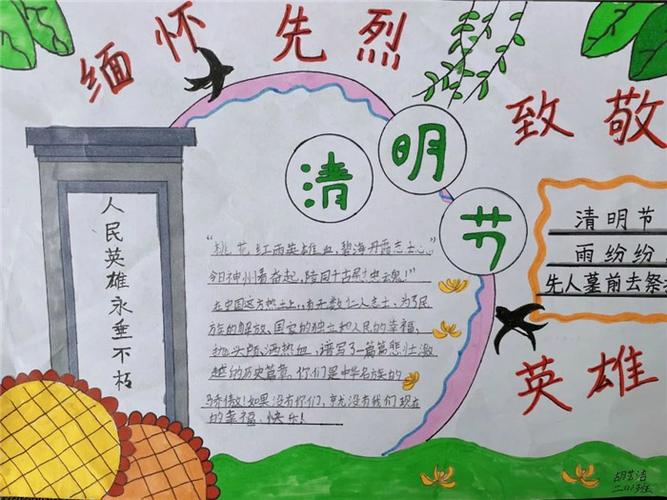 缅怀先烈
致敬
英雄
清明节
人民英雄永垂不朽
"桃花红雨英雄血，碧海丹霞志士心。"
今日神州看奋起，陪同千古慰忠魂！
在中国这方热土上，有无数仁人志士，为了民
族的解放、国家的独立和人民的幸福、
抛头颅、洒热血，谱写了一篇篇悲壮激
越的历史篇章。你们是中华名族的
骄傲！如果没有你们，就没有我们现在
的幸福、快乐！
清明节
雨纷纷
先人墓前去祭
胡